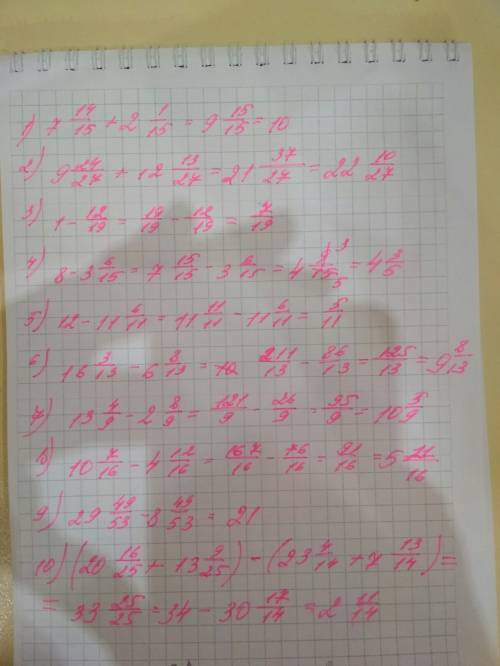 1) 7 14/15 + 2 1/15 = 9 15/15 = 10
2) 9 24/27 + 12 13/27 = 21 37/27 = 22 10/27
3) 1 - 12/19 = 19/19 - 12/19 = 7/19
4) 8 - 3 6/15 = 7 15/15 - 3 6/15 = 4 9/15 = 4 3/5
5) 12 - 11 6/11 = 11 11/11 - 11 6/11 = 5/11
6) 16 3/13 - 6 8/13 = 211/13 - 86/13 = 125/13 = 9 8/13
7) 13 4/9 - 2 8/9 = 121/9 - 26/9 = 95/9 = 10 5/9
8) 10 7/16 - 4 12/16 = 167/16 - 76/16 = 91/16 = 5 11/16
9) 29 49/53 - 8 49/53 = 21
10) (20 16/25 + 13 9/25) - (23 4/14 + 7 13/14) =
= 33 25/25 = 34 - 30 17/14 = 2 11/14